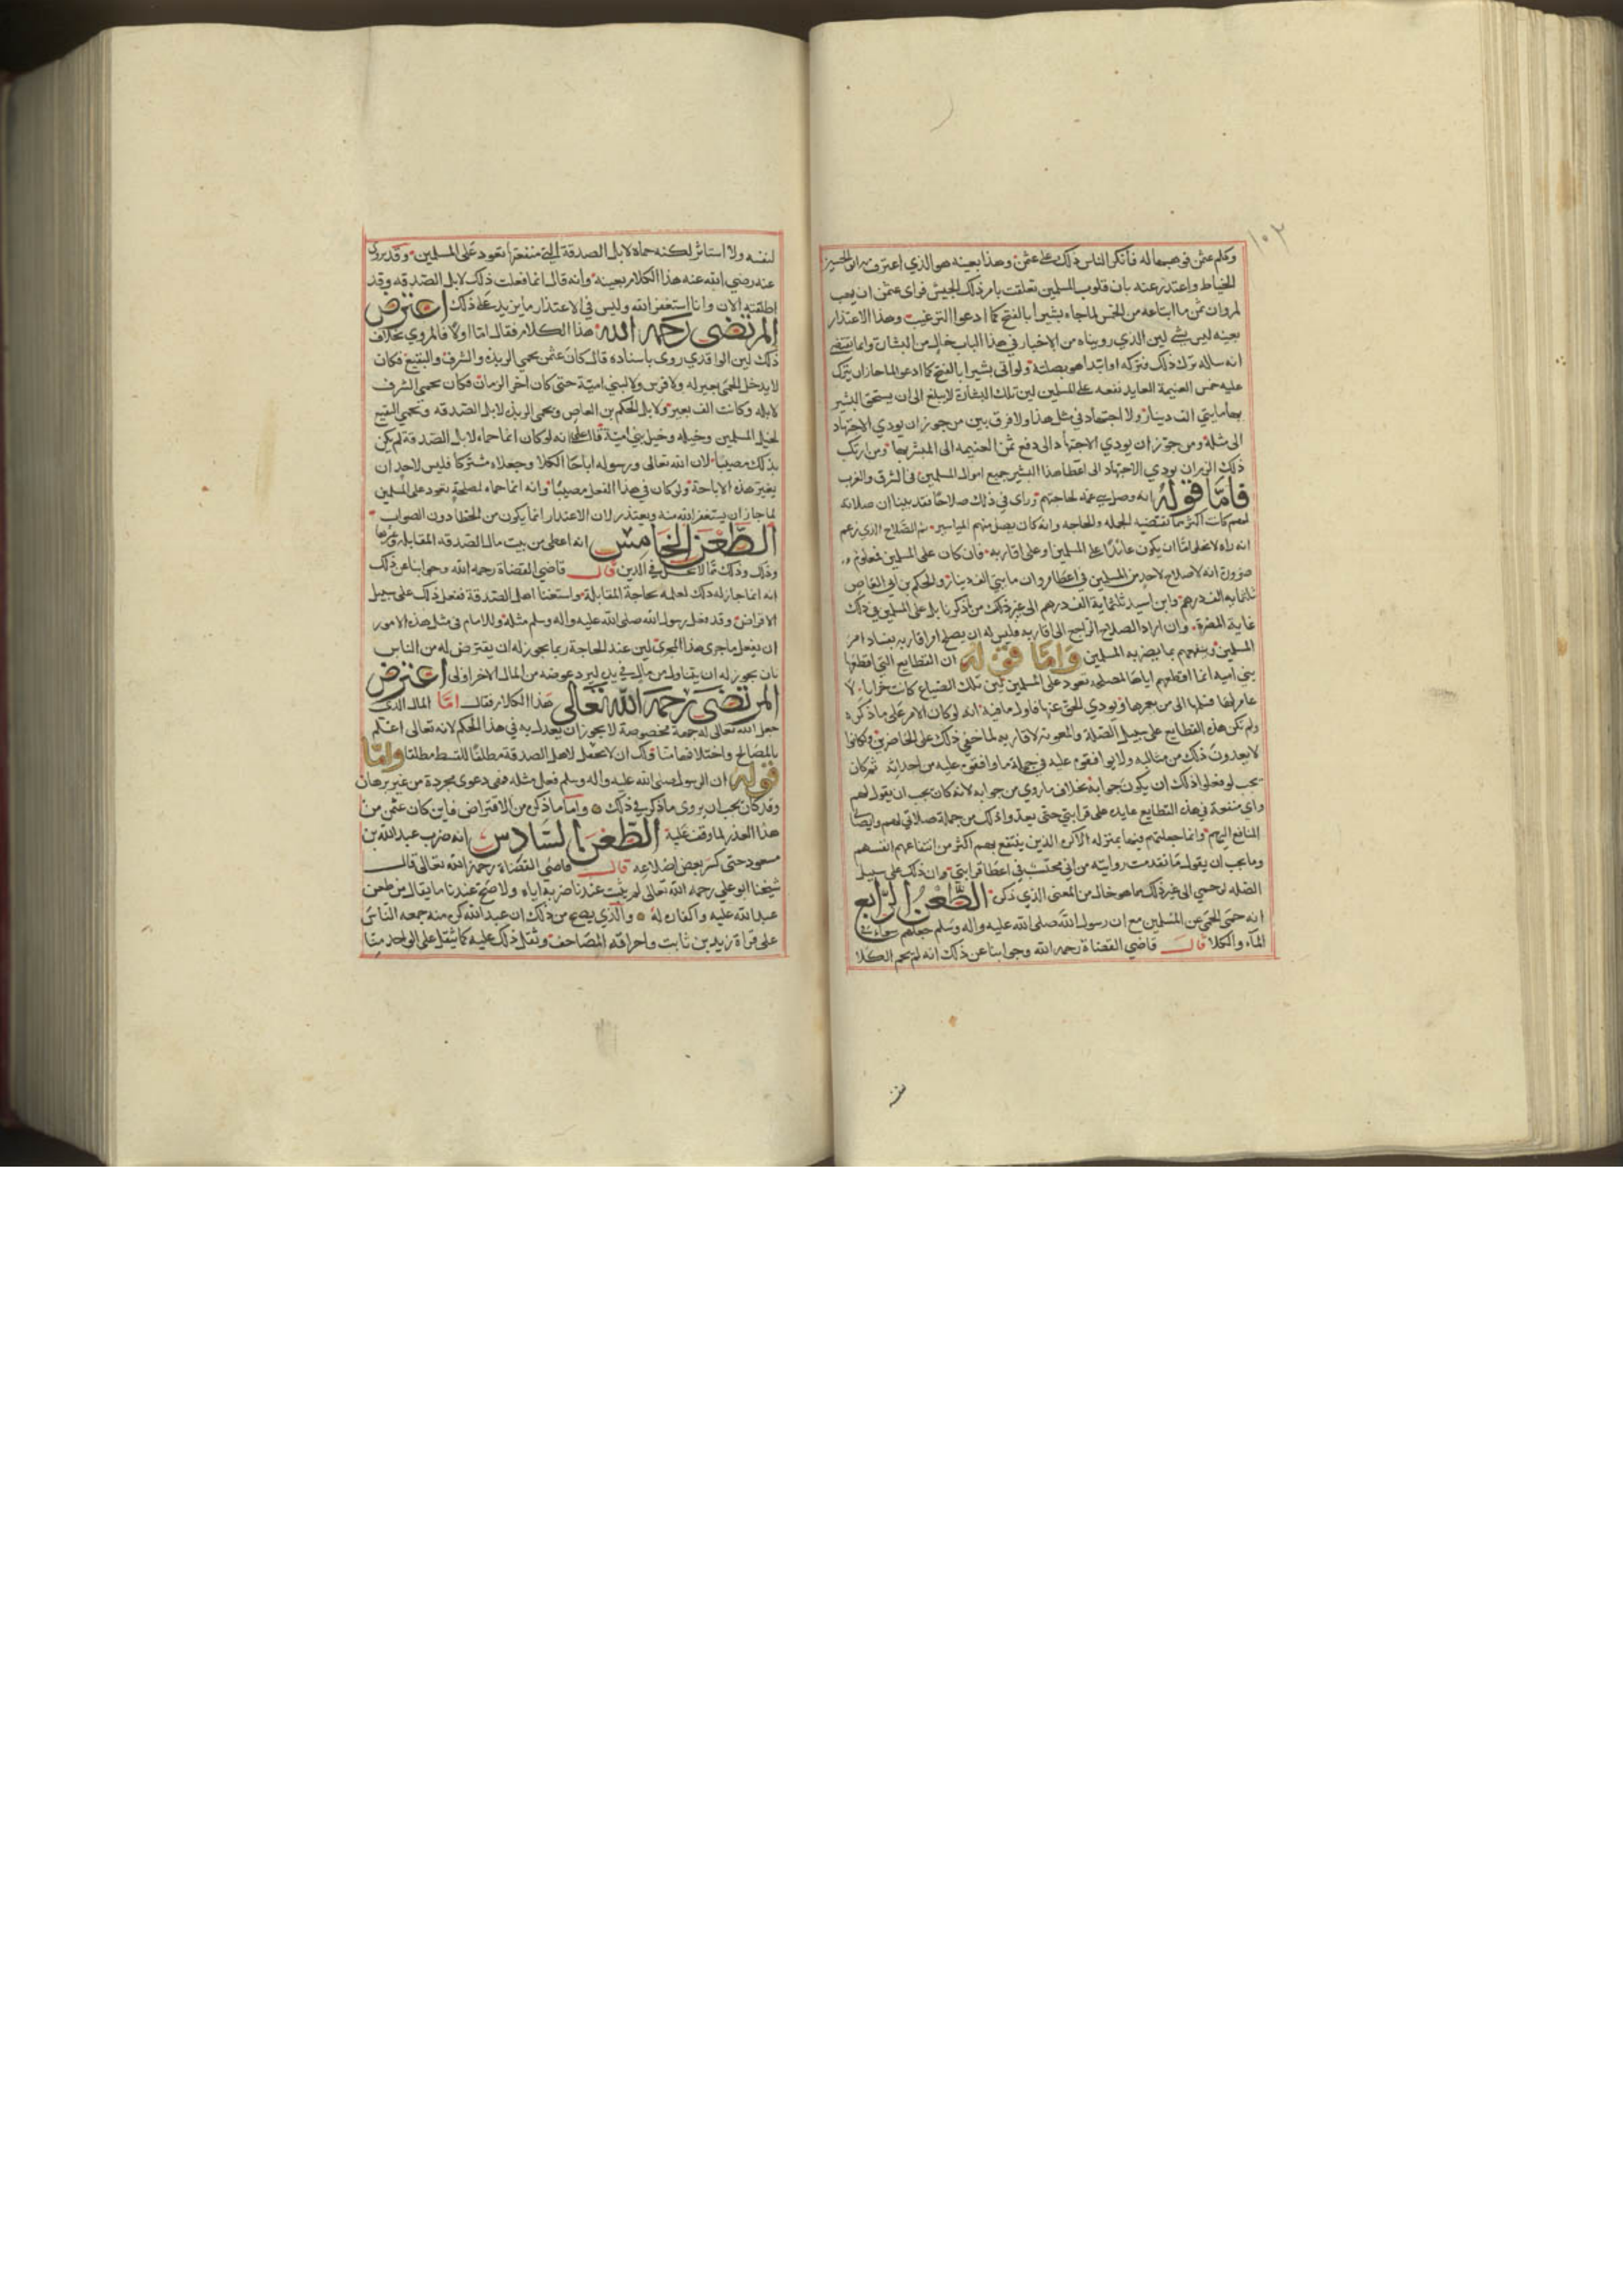 ١٠٢
وكلم عثمن فوهبها له فانكر الناس ذلك على عثمن وهذا بعينه هو الذي اعترف به ابو الحسين
الخياط واعتذر عنه بان قلوب المسلمين تعلقت بامر ذلك الجيش فراى عثمن ان يهب
لمروان ثمن ما ابتاعه من الخمس لما جاء بشيرا بالفتح كما ادعوا الترغيب وهذا الاعتذار
بعينه ليس بشي لين الذي رويناه من الاخبار في هذا الباب خالٍ من البشارة وانما يقتضي
انه ساله ترك ذلك فتركه او ابتدا هو بصلته ولو اتى بشيرا بالفتح كما ادعوا لما جاز ان يترك
عليه خمس الغنيمة العايد نفعه على المسلمين لين تلك البشارة لا يبلغ الى ان يستحق البشير
بها مايتي الف دينار ولا اجتهاد في مثل هذا ولا فرق بين من جوز ان يودي الاجتهاد
الى مثله ومن جوّز ان يودي الاجتهاد الى دفع ثمن الغنيمه الى المبشر بها ومن ارتكب
ذلك الزم ان يودي الاجتهاد الى اعطا هذا البشير جميع اموال المسلمين في الشرق والغرب
فامّا قوله انه وصل بني عمه لحاجتهم وراى في ذلك صلاحًا فقد بينا ان صلاته
لهم كانت اكثر مما تقتضيه الخله والحاجه وانه كان يصل منهم المياسير ثم الصّلاح الذي زعم
انه راه لا يخلوا امّا ان يكون عائدًا على المسلمين او على اقاربه فان كان على المسلمين فمعلوم
ضرورة انه لا صلاح لاحدٍ من المسلمين في اعطا مروان مايتي الف دينار والحكم بن ابي العاص
ثلثمايه الف درهم وابن اسيد ثلثماية الف درهم الى غير ذلك من ذكرنا بل على المسلمين في ذلك
غاية المضرة وان اراد الصلاح الرّاجع الى اقاربه فليس له ان يصلح امر اقاربه بفساد امر
المسلمين وينفعهم بما يضر به المسلمين وامّا قوله ان القطايع التي اقطعها
بني اميه انما اقطعهم اياها لمصلحه تعود على المسلمين لين تلك الضياع كانت خرابا لا
عامر لها فسلمها الى من يعمرها ويودي الحق عنها فاول ما فيه انه لو كان الامر على ما ذكره
ولم تكن هذه القطايع على سبيل الصّلة والمعونة لاقاربه لما خفي ذلك على الحاضرين ولكانوا
لا يعدون ذلك من مثالبه ولا يواقفونه عليه في جملة ما واقفوه عليه من احداثه ثم كان
يجب لو فعلوا ذلك ان يكون جوابه بخلاف ما روي من جوابه لانه كان يجب ان يقول لهم
واي منفعة في هذه القطايع عايدة على قرابتي حتى يعدوا ذلك من جملة صلاتي لهم وايصالي
المنافع اليهم وانما جعلتهم فيها بمنزله الاكره الذين ينتفع بهم اكثر من انتفاعهم انفسهم
وما يجب ان يقول ما تقدمت روايته من اني محتسب في اعطا قرابتي وان ذلك على سبيل
الصّله لرحمي الى غير ذلك مما هو خالٍ من المعنى الذي ذكره الطّعن الرّابع
انه حمى الحمى عن المسلمين مع ان رسول الله صلى الله عليه واله وسلم جعلهم سواء في
المآء والكلا قال قاضي القضاة رحمه الله وجوابنا عن ذلك انه لم يحم الكلا
لنفسه ولا استاثر لكنه حماه لابل الصدقة التي منفعتها تعود على المسلمين وقد روى
عنه رضي الله عنه هذا الكلام بعينه وانه قال انما فعلت ذلك لابل الصّدقه وقد
اطلقته الان وانا استغفر الله وليس في الاعتذار ما يزيد على ذلك اعترض
المرتضى رحمه الله هذا الكلام فقال امّا اولًا فالمروي بخلاف
ذلك لين الواقدي روى باسناده قال كان عثمن يحمي الربذه والشرف والبقيع فكان
لا يدخل الحمى بعير له ولا فرس ولا لبني اميّة حتى كان اخر الزمان فكان يحمي الشرف
لابله وكانت الف بعير ولابل الحكم بن العاص ويحمي الربذه لابل الصّدقه ويحمي البقيع
لخيل المسلمين وخيله وخيل بني اميّة قال على انه لو كان انما حماه لابل الصّدقة لم يكن
بذلك مصيبًا لان الله تعالى ورسوله اباحا الكلا وجعلاه مشتركًا فليس لاحدٍ ان
يغير هذه الاباحة ولو كان في هذا الفعل مصيبًا وانه انما حماه لمصلحةٍ تعود على المسلمين
لما جاز ان يستغفر الله منه ويعتذر لان الاعتذار انما يكون من الخطا دون الصواب
الطّعن الخامس انه اعطى من بيت مال الصّدقه المقاتله وغيرها
وذلك مما لا يحل في الدين قال قاضي القضاة رحمه الله وجوابنا عن ذلك
انه انما جاز له ذلك لعلمه بحاجة المقاتلة واستغنا اهل الصّدقة ففعل ذلك على سبيل
الاقراض وقد فعل رسول الله صلى الله عليه واله وسلم مثله وللامام في مثل هذه الامور
ان يفعل ما جرى هذا المجرى لين عند الحاجة ربما يجوز له ان يقترض له من الناس
بان يجوز له ان يتناول من مال في يده ليرد عوضه من المال الاخر اولى اعترض
المرتضى رحمه الله تعالى هذا الكلام فقال امّا المال الذي
جعل الله تعالى له جهة مخصوصة لا يجوز ان يعدل به في هذا الحكم لانه تعالى اعلم
بالمصالح واختلافها منا وامّا
قوله ان الرسول صلى الله عليه واله وسلم فعل مثله فهي دعوى مجردة من غير برهان
وقد كان يجب ان يروى ما ذكر في ذلك وامّا ما ذكره من الاقتراض فاين كان عثمن من
هذا العذر لما وقف عليه الطّعن السّادس انه ضرب عبد الله بن
مسعود حتى كسر بعض اضلاعه قال قاضي القضاة رحمه الله تعالى قال
شيخنا ابو علي رحمه الله تعالى لم يثبت عندنا ضربه اياه ولا صحّ عندنا ما يقال من طعن
عبد الله عليه واكفاره له والّذي يصح من ذلك ان عبد الله كره منه جمعه النّاس
على قراة زيد بن ثابت واحراقه المصاحف وثقل ذلك عليه كما يثقل على الواحد منّا
نفسه